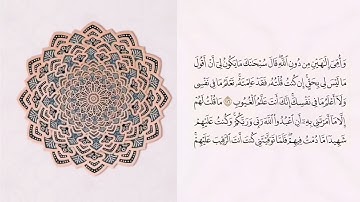 وَأُمِّىَ إِلَٰهَيْنِ مِن دُونِ ٱللَّهِ قَالَ سُبْحَٰنَكَ مَا يَكُونُ لِىٓ أَنْ أَقُولَ
مَا لَيْسَ لِى بِحَقٍّ إِن كُنتُ قُلْتُهُۥ فَقَدْ عَلِمْتَهُۥ تَعْلَمُ مَا فِى نَفْسِى
وَلَآ أَعْلَمُ مَا فِى نَفْسِكَ إِنَّكَ أَنتَ عَلَّٰمُ ٱلْغُيُوبِ ۝ مَا قُلْتُ لَهُمْ
إِلَّا مَآ أَمَرْتَنِى بِهِۦٓ أَنِ ٱعْبُدُوا۟ ٱللَّهَ رَبِّى وَرَبَّكُمْ وَكُنتُ عَلَيْهِمْ
شَهِيدًا مَّا دُمْتُ فِيهِمْ فَلَمَّا تَوَفَّيْتَنِى كُنتَ أَنتَ ٱلرَّقِيبَ عَلَيْهِمْ